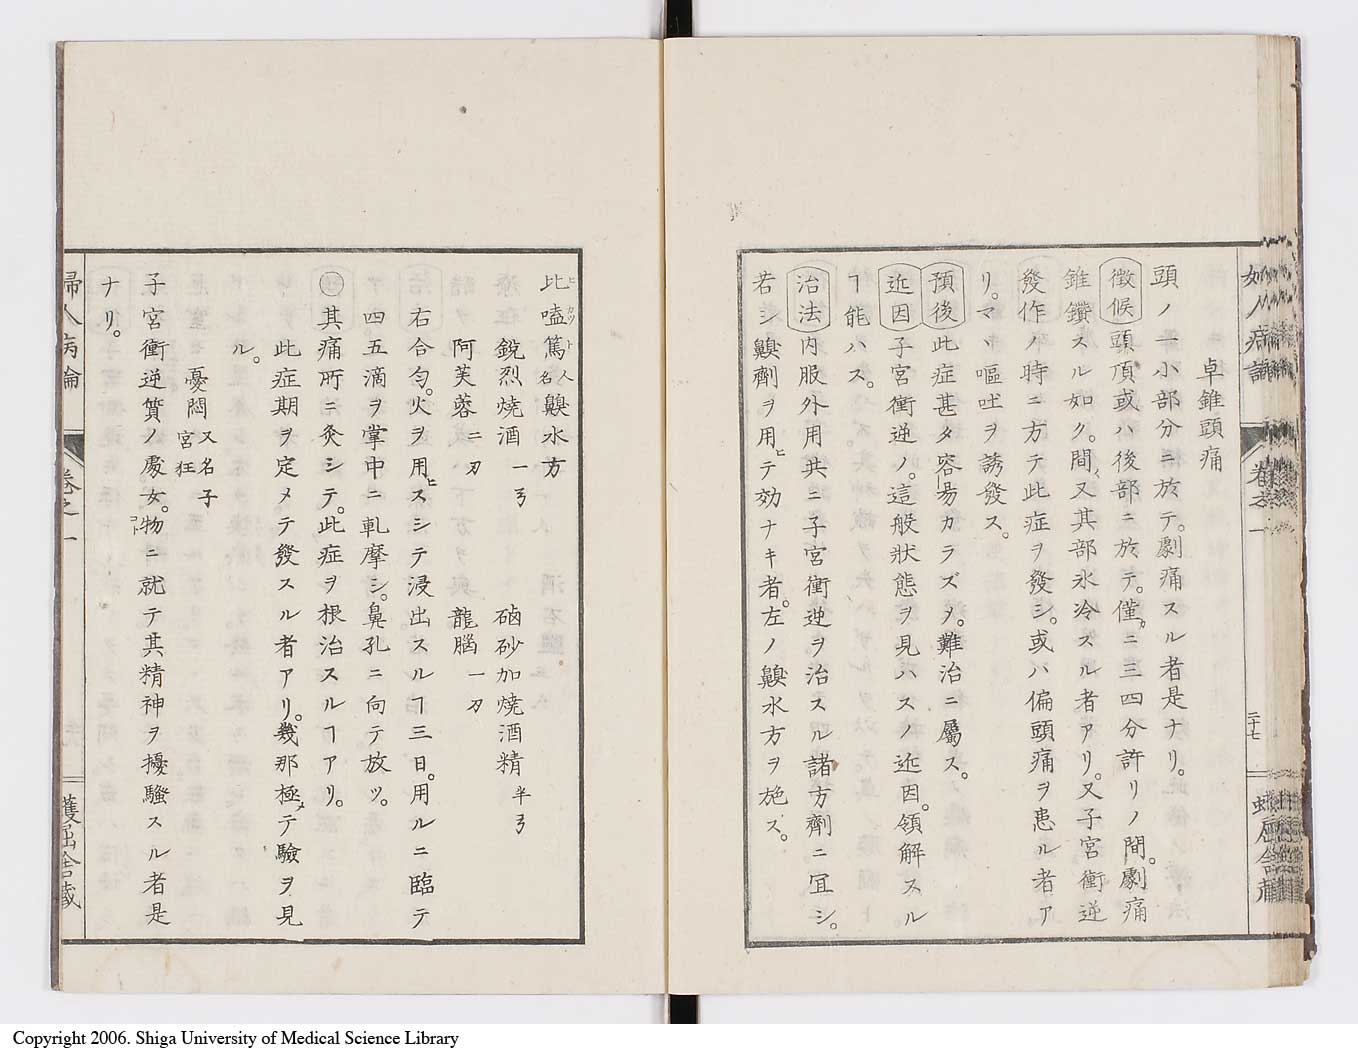 婦人病論
卷之一
二十七
蠖屈舍藏
卓錐頭痛
頭ノ一小部分ニ於テ。劇痛スル者是ナリ。
徴候頭頂或ハ後部ニ於テ。僅カニ三四分許リノ間。劇痛
錐鑽スル如ク。間〻又其部氷冷スル者アリ。又子宮衝逆
發作ノ時ニ方テ此症ヲ發シ。或ハ偏頭痛ヲ患ル者ア
リ。マヽ嘔吐ヲ誘發ス。
預後此症甚タ容易カラズノ。難治ニ屬ス。
近因子宮衝逆ノ。這般狀態ヲ見ハスノ近因。領解スル
ヿ能ハス。
治法內服外用共ニ子宮衝逆ヲ治スル諸方劑ニ冝シ。
若シ齅劑ヲ用ヒテ効ナキ者。左ノ齅水方ヲ施ス。
比嗑篤人名齅水方
ヒカット
銳烈燒酒 一弓 硇砂加燒酒精 半弓
阿芙蓉 二刃 龍腦 一刃
右合匀。火ヲ用ヒスシテ浸出スルヿ三日。用ルニ臨テ
四五滴ヲ掌中ニ軋摩シ。鼻孔ニ向テ放ツ。
〇其痛所ニ灸シテ。此症ヲ根治スルヿアリ。
此症期ヲ定メテ發スル者アリ。幾那極メテ驗ヲ見
ル。
憂悶 又名子宮狂
子宮衝逆質ノ處女。物コトニ就テ其精神ヲ擾騷スル者是
ナリ。
婦人病論
卷之一
蠖屈舍藏
Copyright 2006. Shiga University of Medical Science Library